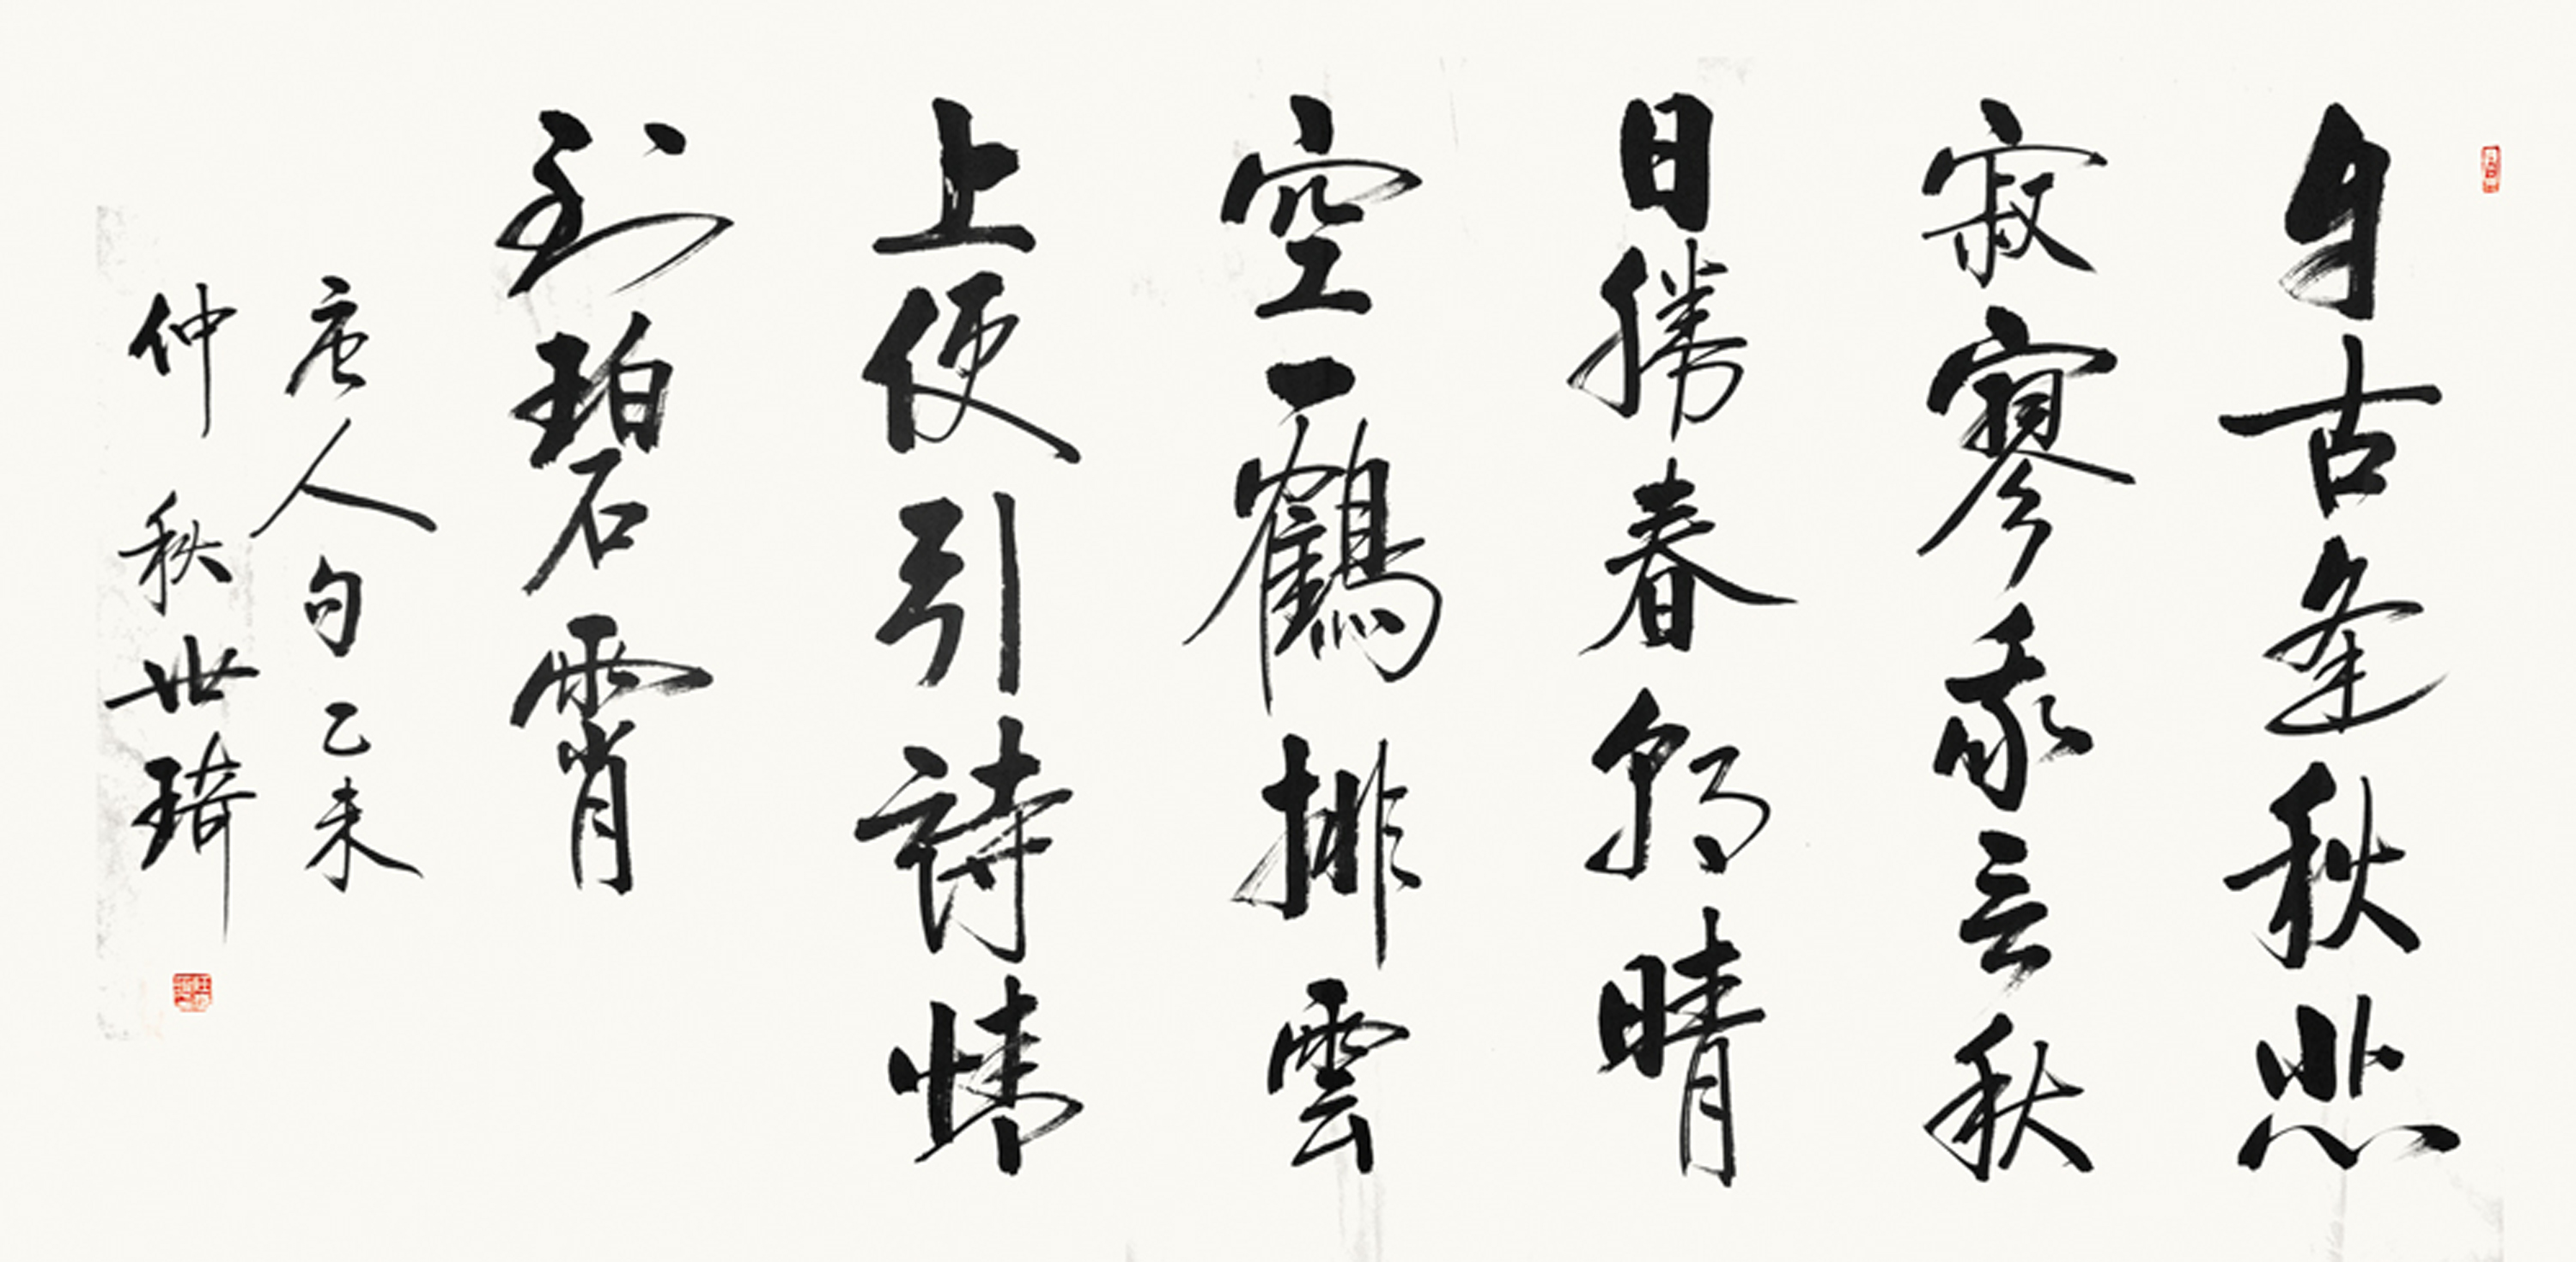 自古逢秋悲
寂寥我言秋
日勝春朝晴
空一鶴排雲
上便引詩情
到碧霄
唐人句乙未
仲秋世琦